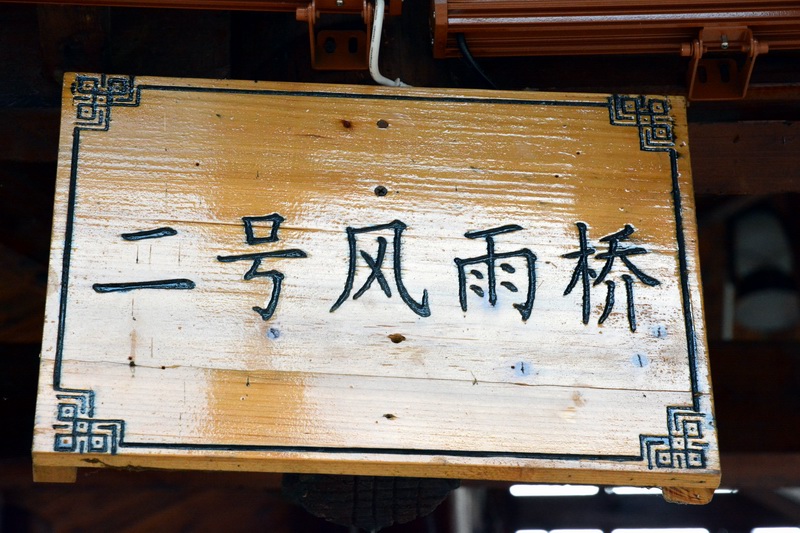 二号风雨桥